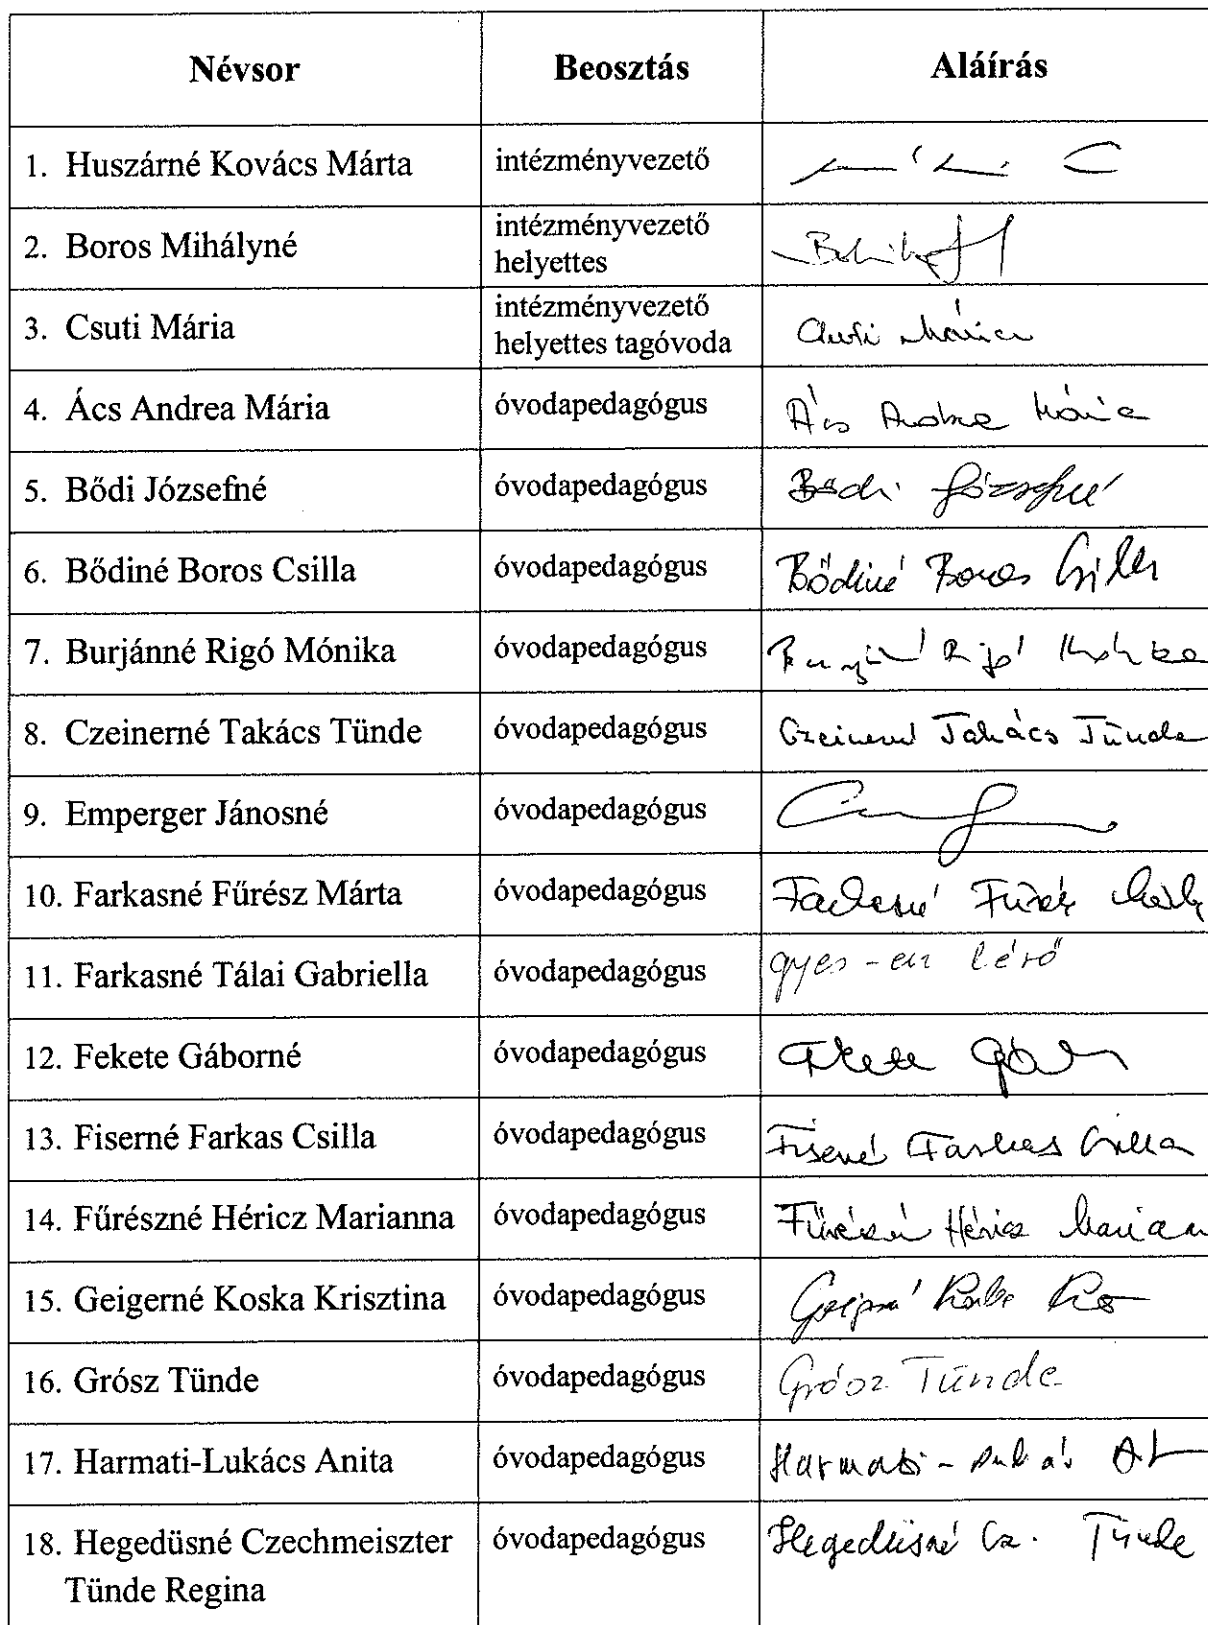 Névsor Beosztás Aláírás
1. Huszárné Kovács Márta intézményvezető
2. Boros Mihályné intézményvezető
helyettes
3. Csuti Mária intézményvezető
helyettes tagóvoda Csuti Mária
4. Ács Andrea Mária óvodapedagógus Ács Andrea Mária
5. Bődi Józsefné óvodapedagógus Bődi Józsefné
6. Bődiné Boros Csilla óvodapedagógus Bődiné Boros Csilla
7. Burjánné Rigó Mónika óvodapedagógus Burjánné Rigó Mónika
8. Czeinerné Takács Tünde óvodapedagógus Czeinerné Takács Tünde
9. Emperger Jánosné óvodapedagógus
10. Farkasné Fűrész Márta óvodapedagógus Farkasné Fűrész Márta
11. Farkasné Tálai Gabriella óvodapedagógus gyes-en lévő
12. Fekete Gáborné óvodapedagógus Fekete Gáborné
13. Fiserné Farkas Csilla óvodapedagógus Fiserné Farkas Csilla
14. Fűrészné Héricz Marianna óvodapedagógus Fűrészné Héricz Mariann
15. Geigerné Koska Krisztina óvodapedagógus Geigerné Koska
16. Grósz Tünde óvodapedagógus Grósz Tünde
17. Harmati-Lukács Anita óvodapedagógus Harmati-Lukács
18. Hegedüsné Czechmeiszter óvodapedagógus Hegedüsné Cz. Tünde
Tünde Regina